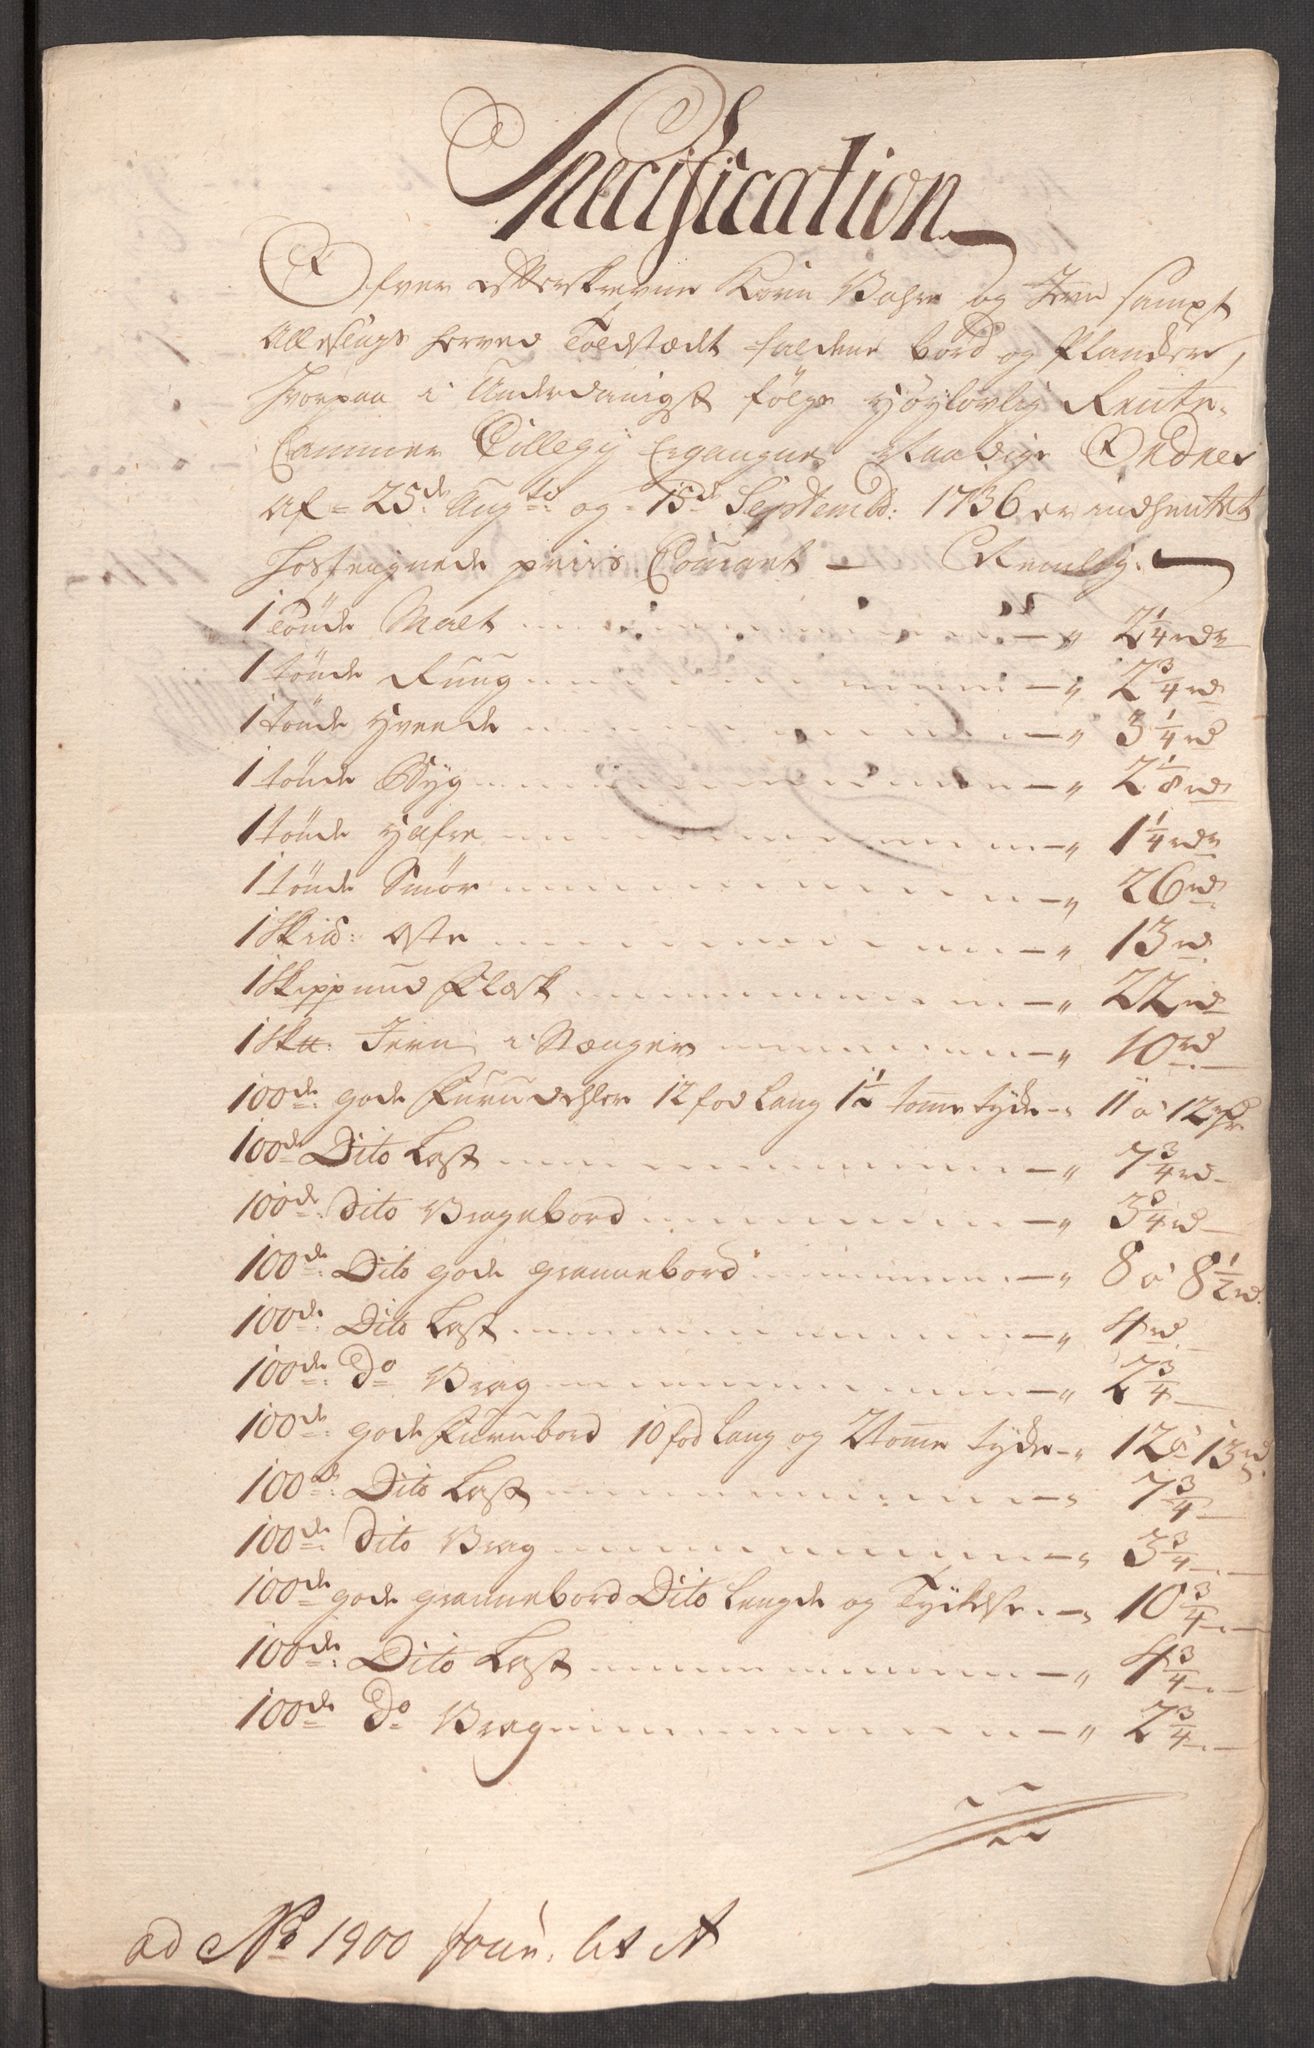 Specification
Ofver efterskrevne Korn Vahre og Jern sampt
Alleslags herved Toldstædet faldene bord og Plancker,
hvorpaa i Underdanigst følge Høylovlig Rente-
Cammer Collegy Ergangne Naadige Ordner
af 25de Augti: og 15de Septembd: 1736 er indhentet
hostegnede priis Courant — Nemlig.
1 Tönde Malt — " 2 1/4 rdr
1 tönde Ruug — " 2 3/4 rd
1 tönde Hveede — " 3 1/4 rd
1 tönde Byg — " 2 1/8 rd
1 tönde Hafre — " 1 1/4 rdr
1 tönde Smör — " 26 rd
1 Skid: Oste — " 13 rd
1 Skippund Flesk — " 22 rd
1 Sk℔: Jern i Stænger — " 10 rd
100de gode Furudehler 12 fod Lang 1 1/2 tomme tyde — " 11 à 12 rdr
100de Dito Last — " 7 3/4 rd
100de Dito Vragebord — " 3 3/4 rd
100de Dito gode grannebord — " 8 à 8 1/2 rd.
100de Dito Last — " 4 rd.
100de Do Vrag — " 2 3/4
100de gode Furubord 10 fod Lang og 2 tomme tyde — " 12 à 13 rd.
100de Dito Last — " 7 3/4
100de Dito Vrag — " 3 3/4
100de gode grannebord Dito Lengde og Tyckelse — " 10 3/4
100de Dito Last — " 4 3/4
100de Do Vrag — " 2 3/4
ad No 1900 Jour. Lit A